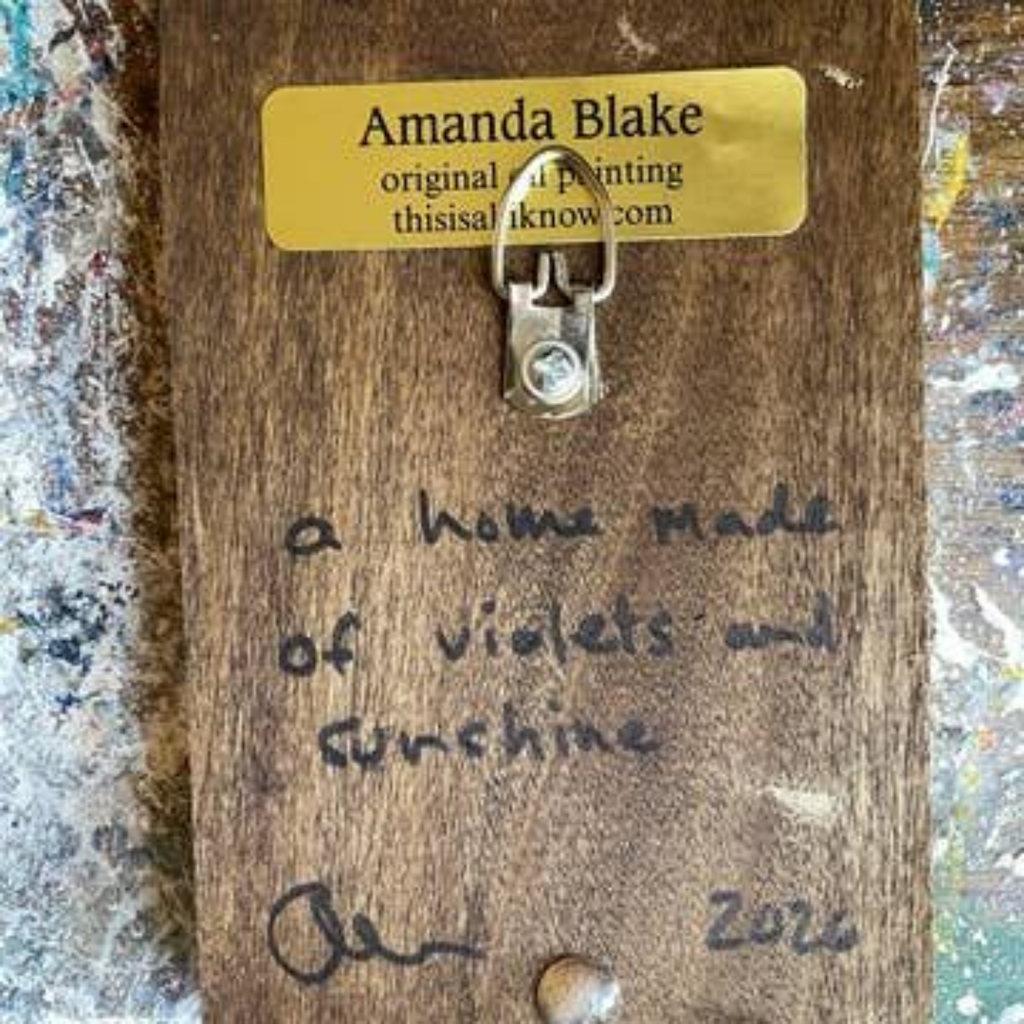 Amanda Blake
original oil painting
thisisalliknow.com
a home made
of violets and
sunshine
2020